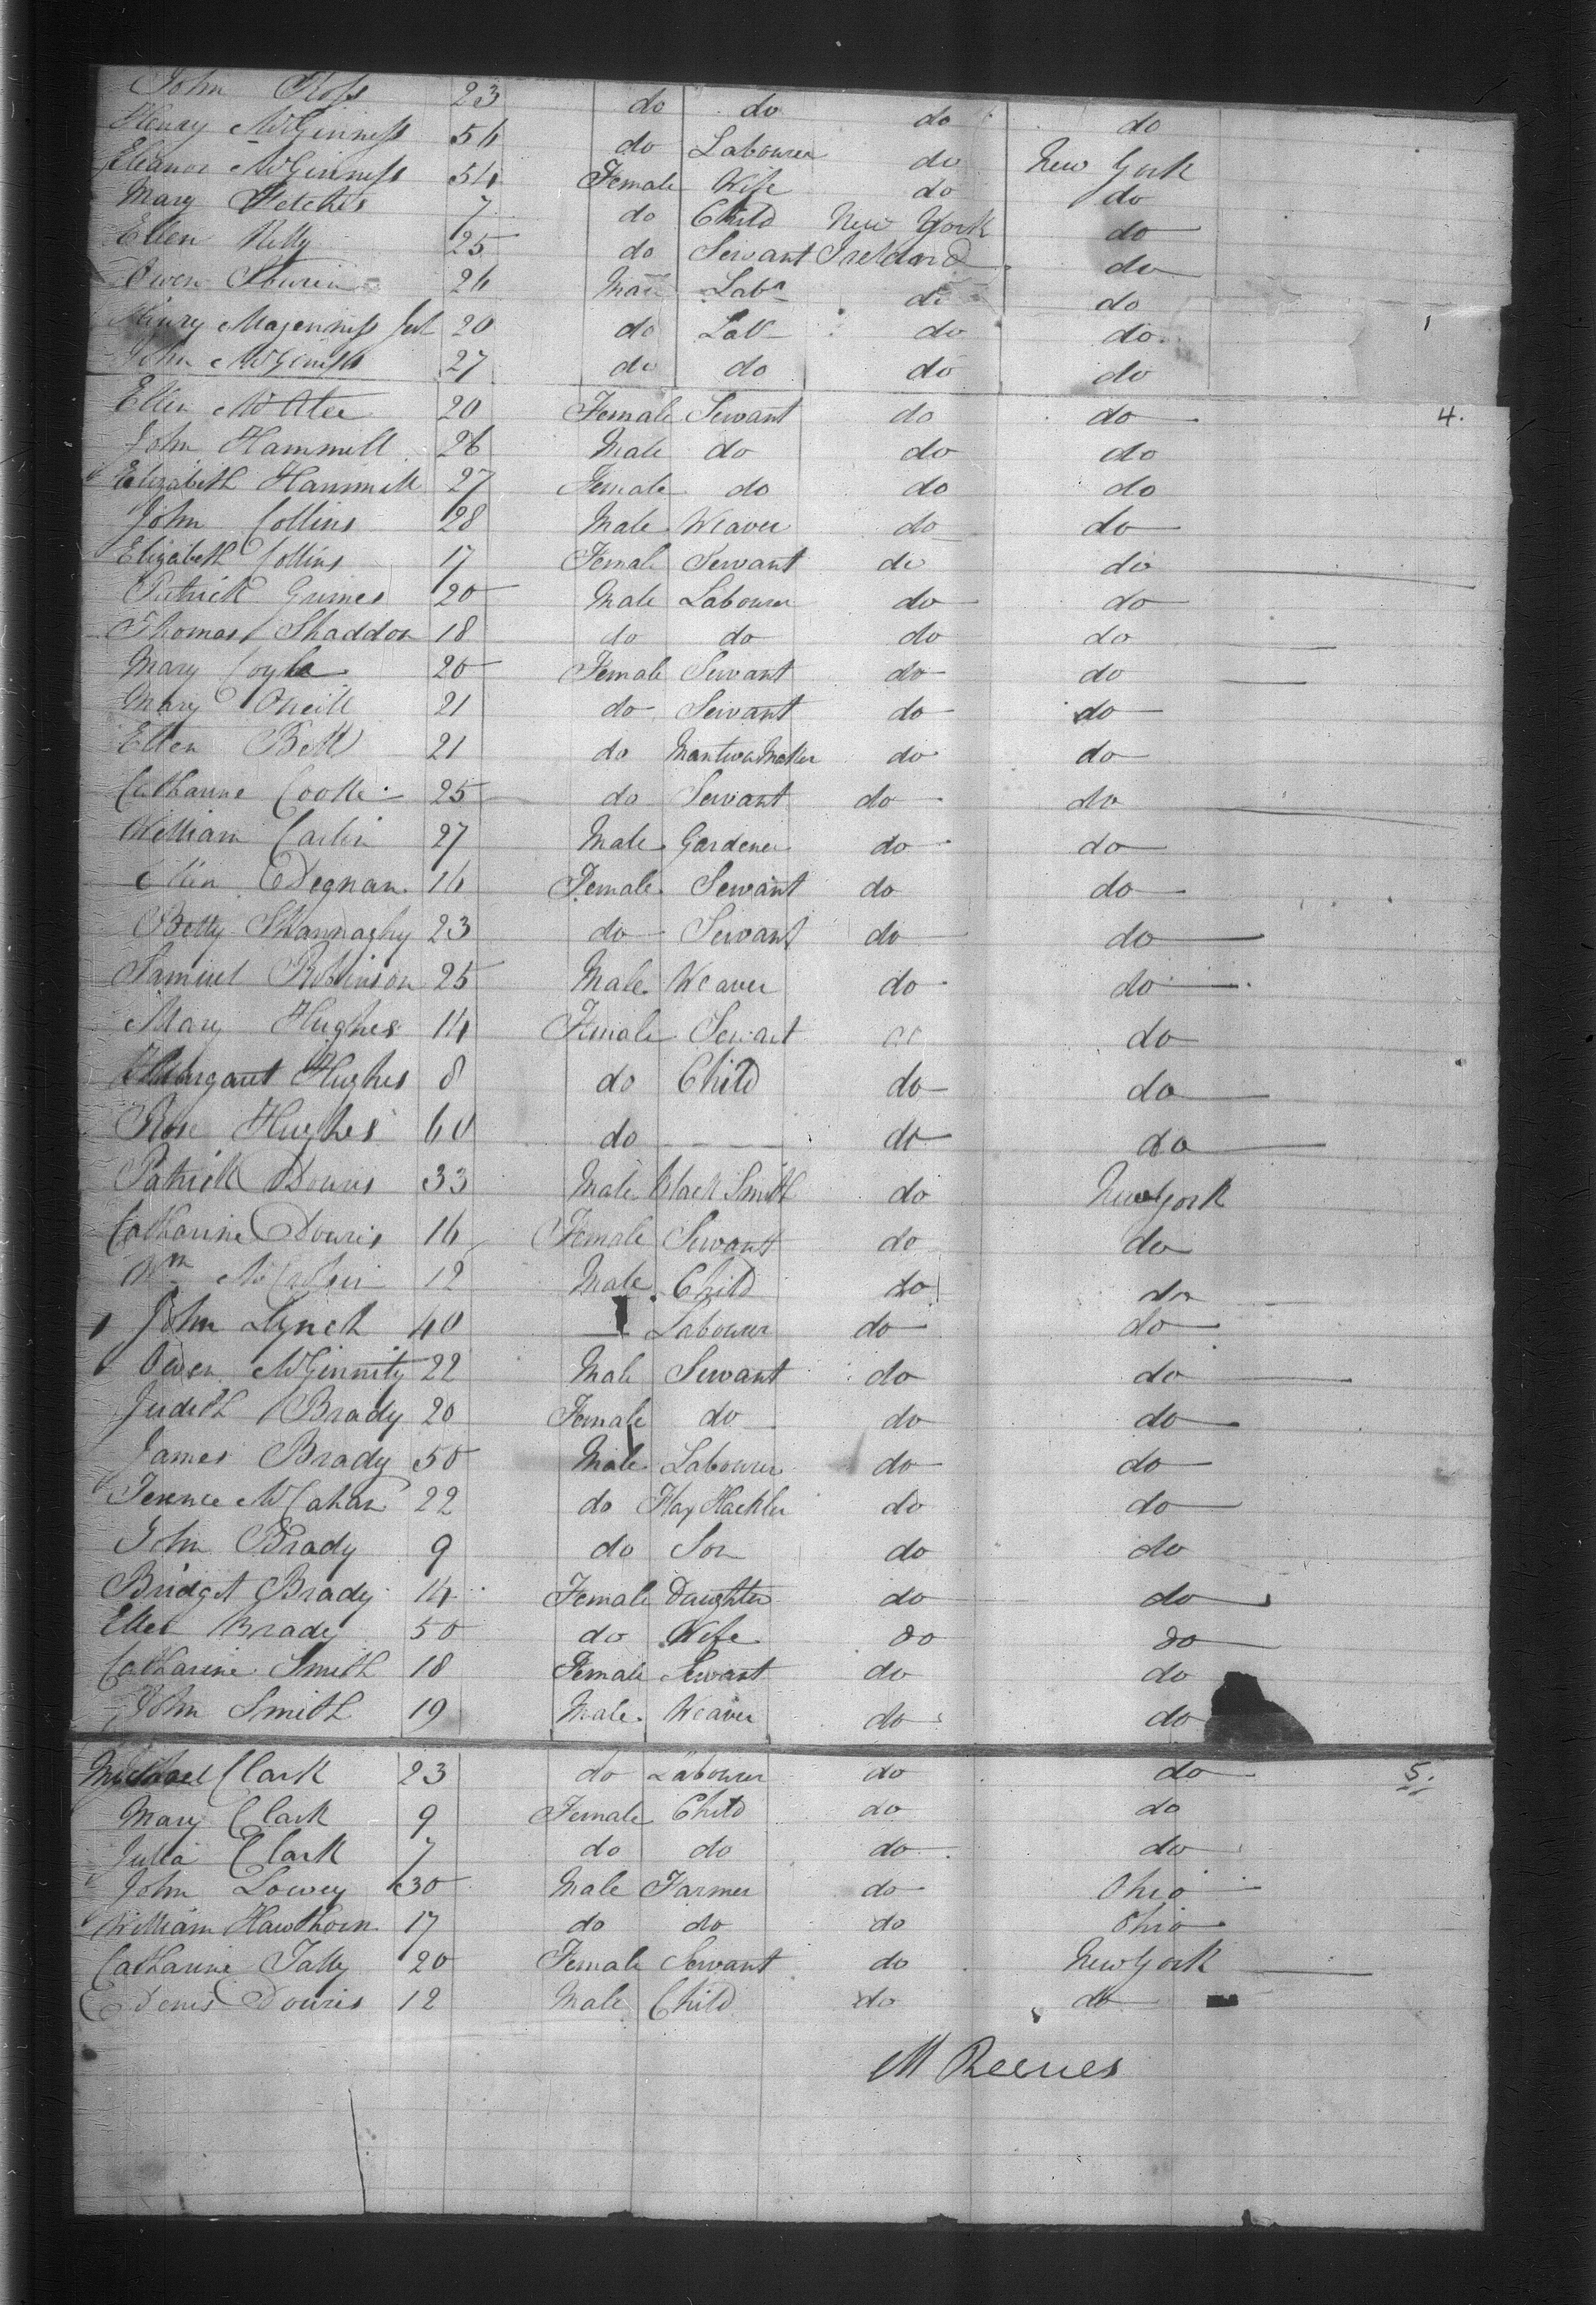 John Ross 23 do do do do
Henry McGinness 56 do Labourer do New York
Eleanor McGinness 54 Female Wife do do
Mary 7 do Child New York do
Ellen Kelly 25 do Servant Ireland do
Owen 26 Male Labr do do
Henry Magenness 20 do Labr do do
John McGinness 27 do do do do
Ellen McAtee 20 Female Servant do do 4.
John Hammill 26 Male do do do
Elizabeth Hammill 27 Female do do do
John Collins 28 Male Weaver do do
Elizabeth Collins 17 Female Servant do do
Patrick Grimes 20 Male Labourer do do
Thomas Shaddon 18 do do do do
Mary Coyle 20 Female Servant do do
Mary Oneill 21 do Servant do do
Ellen Bell 21 do MantuaMaker do do
Catharine Cooke 25 do Servant do do
William Carlin 27 Male Gardener do do
Ellen Degnan 16 Female Servant do do
Betty Shannaghy 23 do Servant do do
Samuel Robinson 25 Male Weaver do do
Mary Hughes 14 Female Servant do do
Margaret Hughes 8 do Child do do
Rose Hughes 60 do — do do
Patrick Douris 33 Male Black Smith do New York
Catharine Douris 16 Female Servant do do
Wm 12 Male Child do do
John Lynch 40 — Labourer do do
Owen McGinnity 22 Male Servant do do
Judith Brady 20 Female do do do
James Brady 50 Male Labourer do do
Terence McCahan 22 do Flax Hackler do do
John Brady 9 do Son do do
Bridget Brady 14 Female Daughter do do
Ellen Brady 50 do Wife do do
Catharine Smith 18 Female Servant do do
John Smith 19 Male Weaver do do
Michael Clark 23 do Labourer do do 5.
Mary Clark 9 Female Child do do
Julia Clark 7 do do do do
John Lowey 30 Male Farmer do Ohio
William Hawthorn 17 do do do Ohio
Catharine Tally 20 Female Servant do New York
Denis Douris 12 Male Child do do
M Reeves